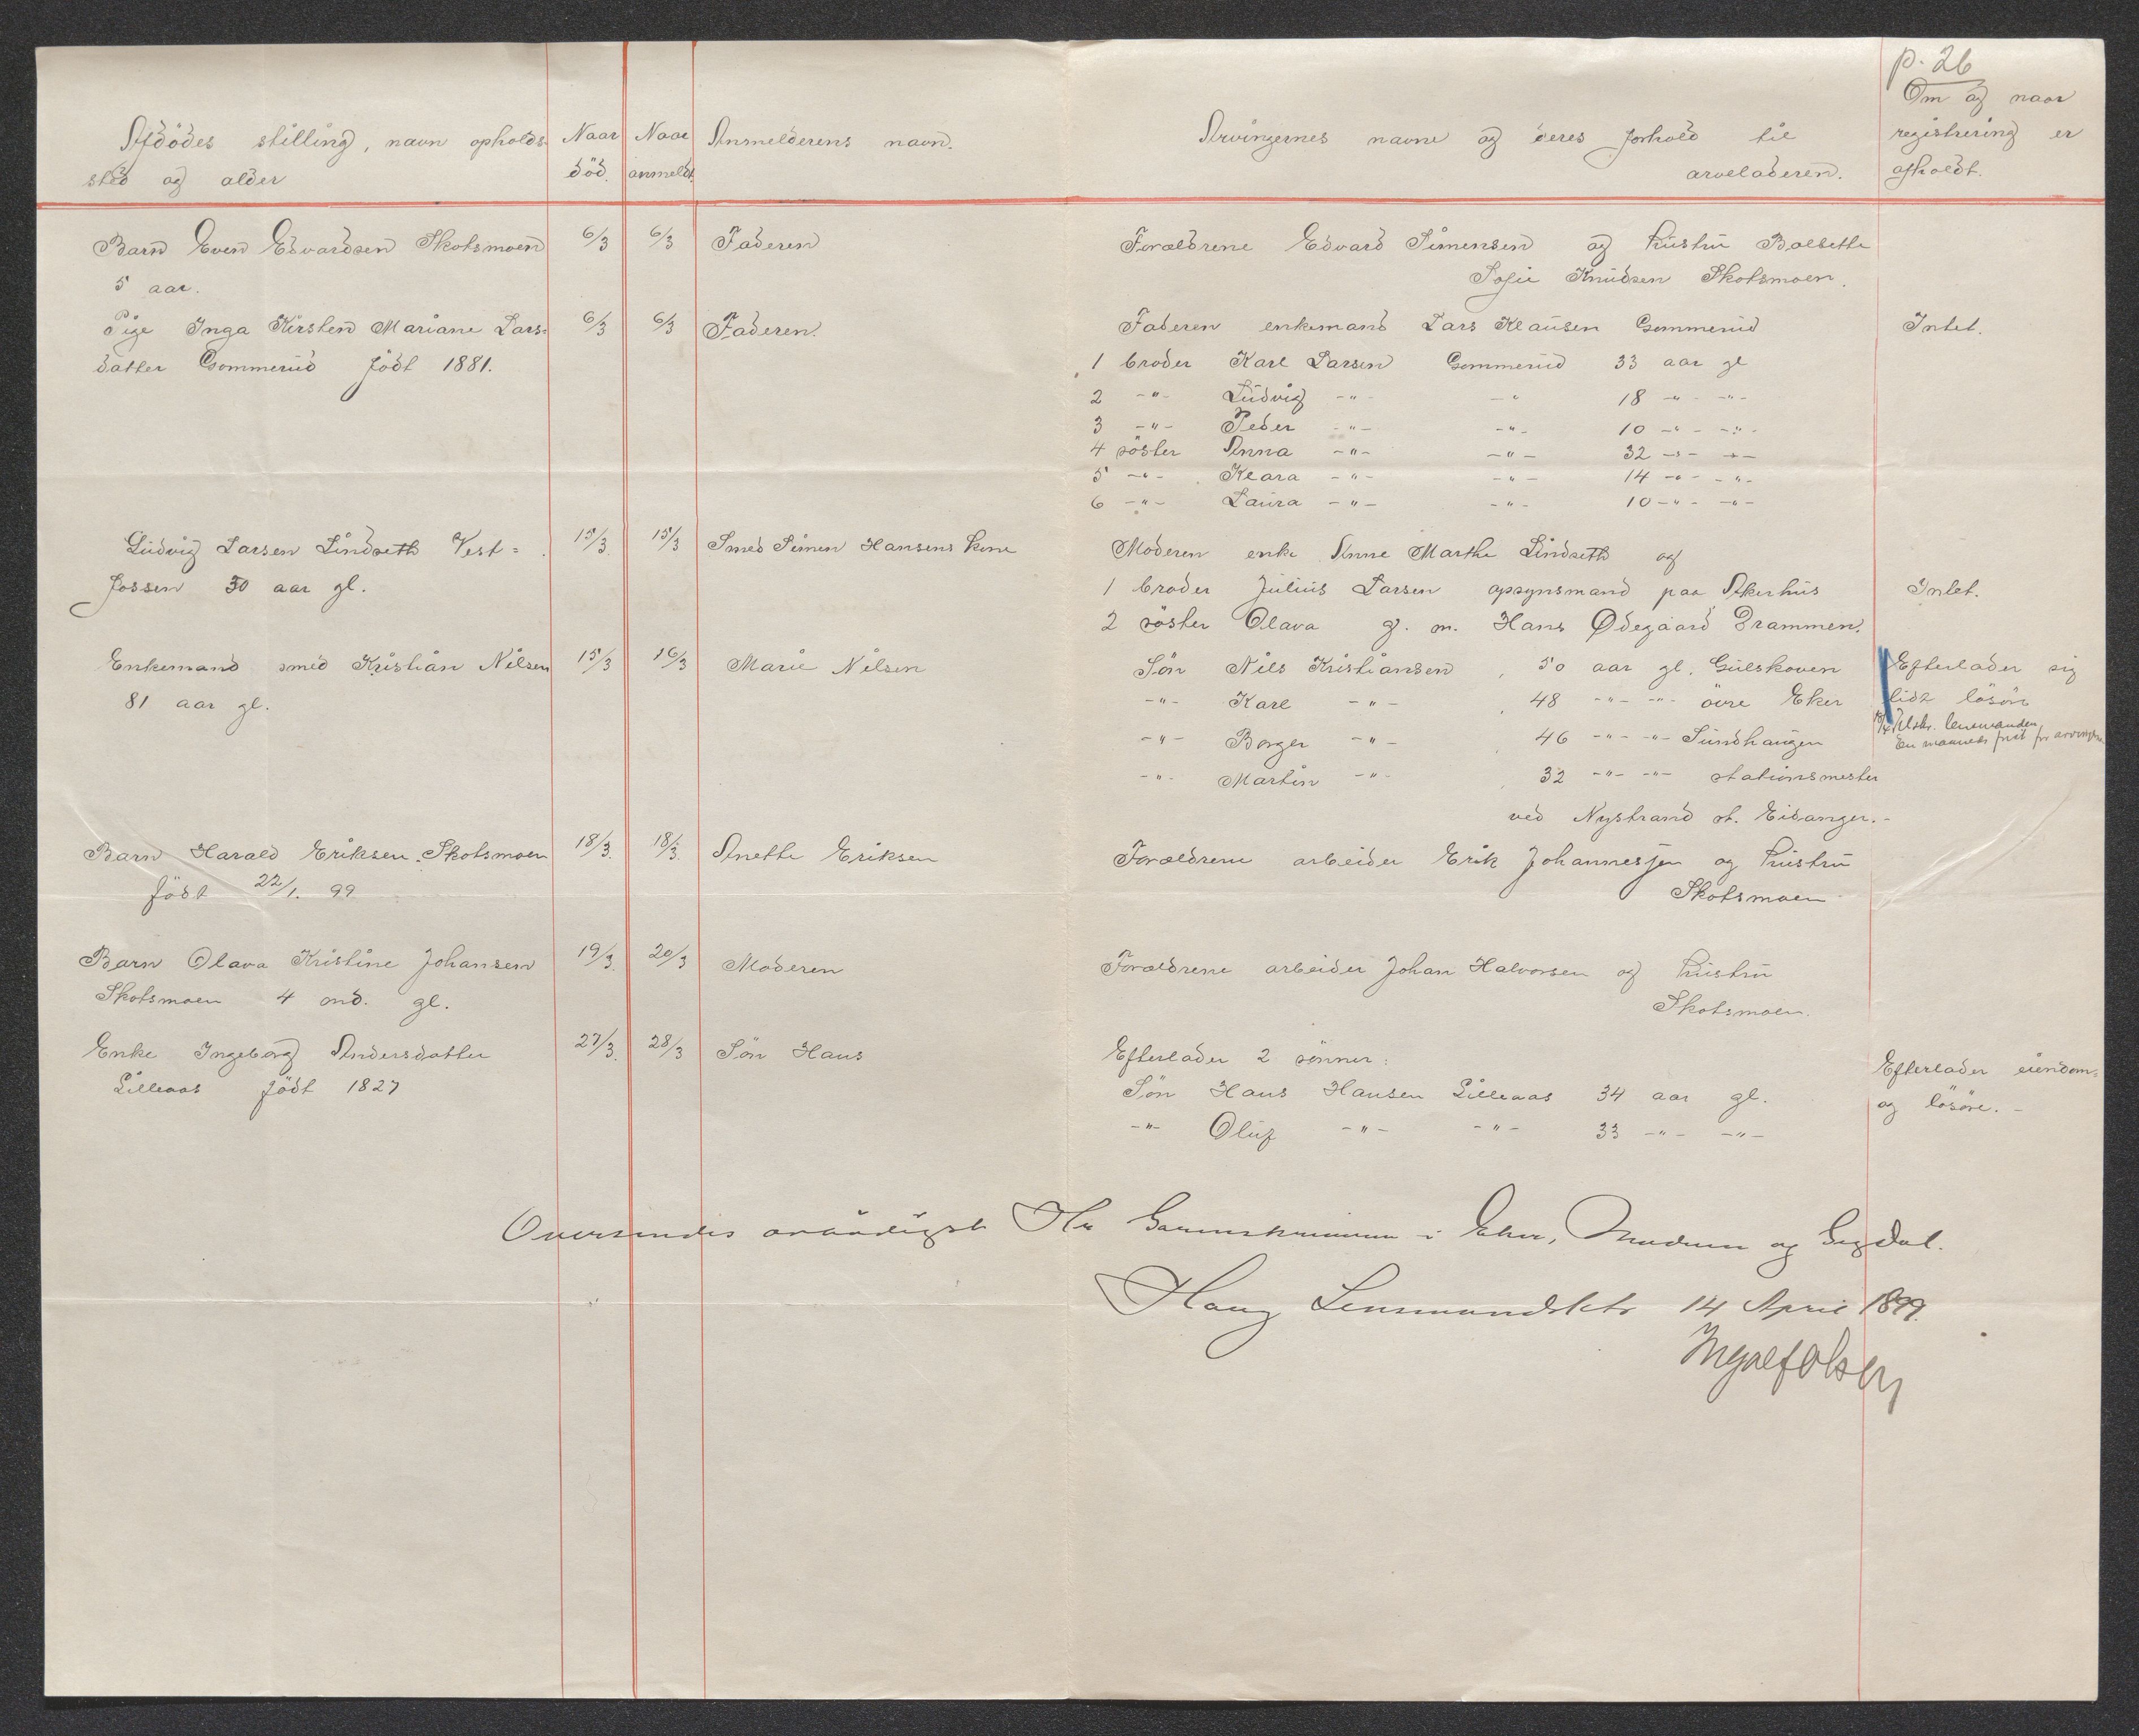 p. 26
Afdödes stilling, navn opholds-
sted og alder
Naar
död.
Naar
anmeldt.
Anmelderens navn.
Arvingernes navne og deres forhold til
arveladeren.
Om og naar
registrering er
afholdt.
Barn Even Edvardsen Skotsmoen 6/3 6/3 Faderen Forældrene Edvard Simensen og hustru Bolsette
5 aar. Sofie Knudsen Skotsmoen.
Pige Inga Kirsten Mariane Lars- 6/3 6/3 Faderen. Faderen enkemand Lars Klausen Gommerud Intet.
datter Gommerud födt 1881. 1 broder Karl Larsen Gommerud 33 aar gl
2 -"- Ludvig -"- -"- 18 -"- -"-
3 -"- Peder -"- -"- 10 -"- -"-
4 söster Anna -"- -"- 32 -"- -"-
5 -"- Klara -"- -"- 14 -"- -"-
6 -"- Laura -"- -"- 10 -"- -"-
Ludvig Larsen Lindseth Vest= 15/3. 15/3 Smed Simen Hansens kone Moderen enke Anne Marthe Lindseth og
fossen 30 aar gl. 1 broder Julius Larsen opsynsmand paa Akerhus Intet.
2 söster Olava g. m. Hans Ødegaard Drammen.
Enkemand smed Kristian Nilsen 15/3 16/3 Marie Nilsen Sön Nils Kristiansen, 50 aar gl. Gulskoven Efterlader sig
81 aar gl. -"- Karl -"- , 48 -"- -"- övre Eker lidt lösöre
-"- Borger -"- , 46 -"- -"- Sundhaugen
lensmanden
En maaneds frist for arvingerne
-"- Martin -"- , 32 -"- -"- stationsmester
ved Nystrand st. Eidanger.-
Barn Harald Eriksen Skotsmoen 18/3. 18/3. Anette Eriksen Forældrene arbeider Erik Johannessen og hustru
födt 22/1. 99 Skotsmoen
Barn Olava Kristine Johansen 19/3. 20/3 Moderen Forældrene arbeider Johan Halvorsen og hustru
Skotsmoen 4 md. gl. Skotsmoen.
Enke Ingeborg Andersdatter 27/3. 28/3 Sön Hans Efterlader 2 sönner: Efterlader eiendom=
Lilleaas födt 1827 Sön Hans Hansen Lilleaas 34 aar gl. og lösöre.-
-"- Oluf -"- -"- 33 -"- -"-
Oversendes ærbödigst Hr Sorenskriveren i Eker, Modum og Sigdal.
Haug Lensmandsktr 14 April 1899.
Ingolf Olsen